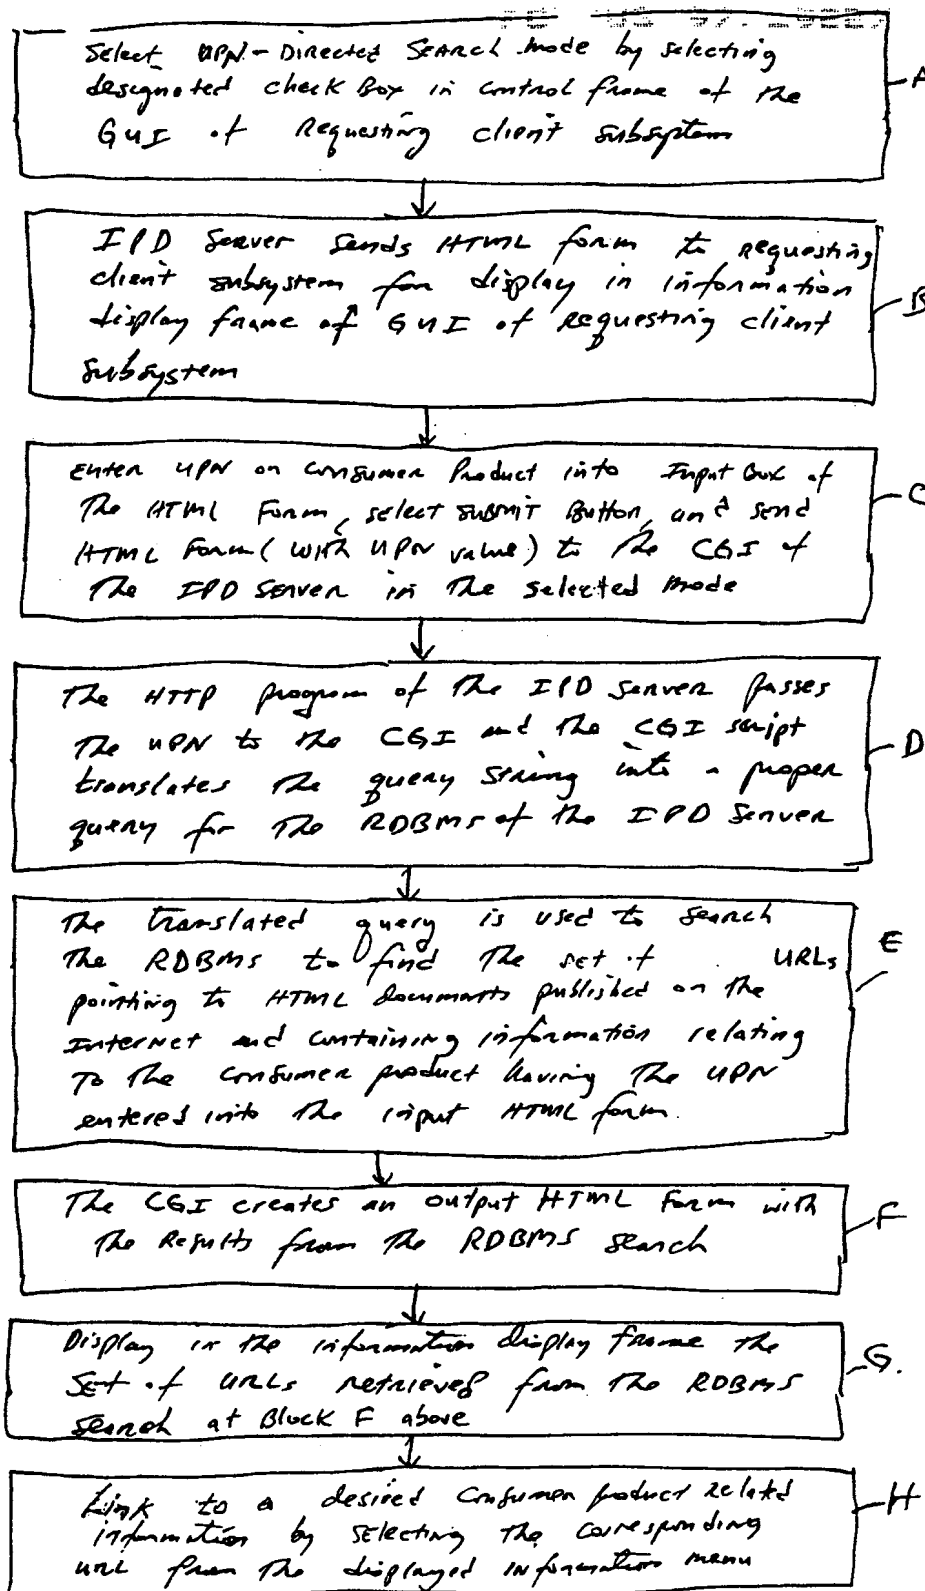 Select UPN-Directed Search mode by selecting
designated check Box in control frame of the
GUI of Requesting client subsystem
A
IPD Server sends HTML form to requesting
client subsystem for display in information
display frame of GUI of requesting client
subsystem
B
Enter UPN on consumer Product into Input Box of
The HTML Form, select SUBMIT Button, and send
HTML Form (with UPN value) to the CGI of
The IPD Server in the selected mode
C
The HTTP program of the IPD Server passes
The UPN to the CGI and the CGI script
translates the query string into a proper
query for the RDBMS of the IPD Server
D
The translated query is used to search
The RDBMS to find the set of URLs
pointing to HTML documents published on the
Internet and containing information relating
To the consumer product having the UPN
entered into the input HTML form.
E
The CGI creates an output HTML Form with
The Results from the RDBMS search
F
Display in the information display frame the
Set of URLs retrieved from the RDBMS
Search at Block F above
G.
Link to a desired consumer product related
information by selecting the corresponding
URL from the displayed information menu
H